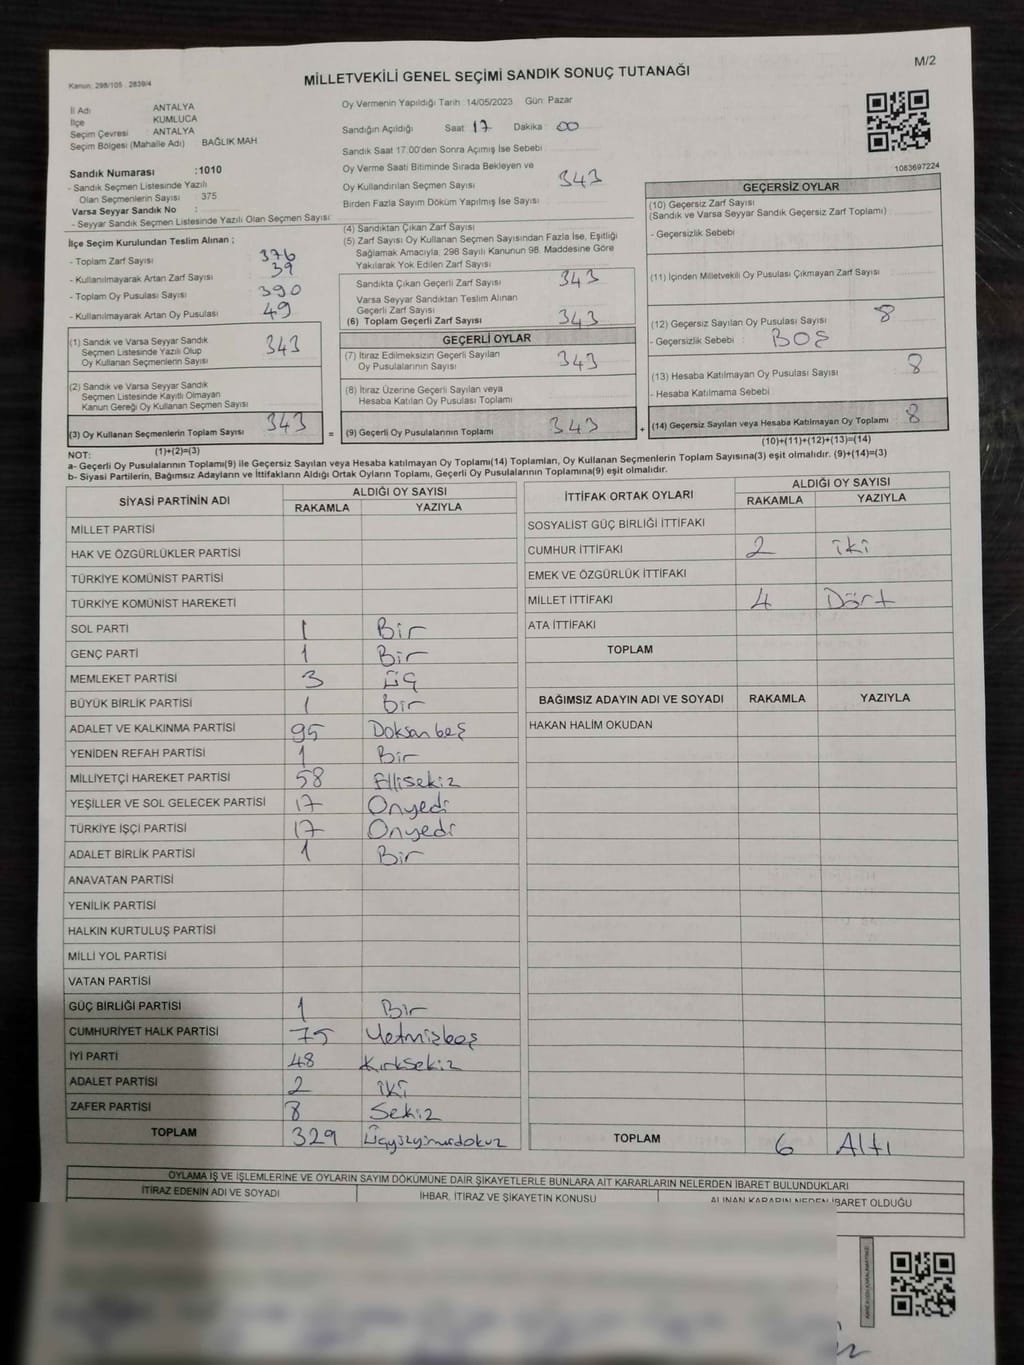 M/2
Kanun: 298/105 2839/4
MİLLETVEKİLİ GENEL SEÇİMİ SANDIK SONUÇ TUTANAĞI
İl Adı ANTALYA
İlçe KUMLUCA
Seçim Çevresi : ANTALYA
Seçim Bölgesi (Mahalle Adı) BAĞLIK MAH
Sandık Numarası :1010
- Sandık Seçmen Listesinde Yazılı
Olan Seçmenlerin Sayısı 375
Varsa Seyyar Sandık No :
- Seyyar Sandık Seçmen Listesinde Yazılı Olan Seçmen Sayısı
Oy Vermenin Yapıldığı Tarih :14/05/2023 Gün: Pazar
Sandığın Açıldığı Saat 17 Dakika 00
Sandık Saat 17.00'den Sonra Açımış İse Sebebi
Oy Verme Saati Bitiminde Sırada Bekleyen ve
Oy Kullandırılan Seçmen Sayısı 343
Birden Fazla Sayım Döküm Yapılmış İse Sayısı
1083697224
İlçe Seçim Kurulundan Teslim Alınan ;
- Toplam Zarf Sayısı 376
- Kullanılmayarak Artan Zarf Sayısı 39
- Toplam Oy Pusulası Sayısı 390
- Kullanılmayarak Artan Oy Pusulası 49
(1) Sandık ve Varsa Seyyar Sandık
Seçmen Listesinde Yazılı Olup
Oy Kullanan Seçmenlerin Sayısı 343
(2) Sandık ve Varsa Seyyar Sandık
Seçmen Listesinde Kayıtlı Olmayan
Kanun Gereği Oy Kullanan Seçmen Sayısı
(3) Oy Kullanan Seçmenlerin Toplam Sayısı 343 =
(1)+(2)=(3)
(4) Sandıktan Çıkan Zarf Sayısı
(5) Zarf Sayısı Oy Kullanan Seçmen Sayısından Fazla İse, Eşitliği
Sağlamak Amacıyla, 298 Sayılı Kanunun 98. Maddesine Göre
Yakılarak Yok Edilen Zarf Sayısı
Sandıkta Çıkan Geçerli Zarf Sayısı 343
Varsa Seyyar Sandıktan Teslim Alınan
Geçerli Zarf Sayısı
(6) Toplam Geçerli Zarf Sayısı 343
GEÇERLİ OYLAR
(7) İtiraz Edilmeksizin Geçerli Sayılan
Oy Pusulalarının Sayısı 343
(8) İtiraz Üzerine Geçerli Sayılan veya
Hesaba Katılan Oy Pusulası Toplamı
(9) Geçerli Oy Pusulalarının Toplamı 343 +
GEÇERSİZ OYLAR
(10) Geçersiz Zarf Sayısı
(Sandık ve Varsa Seyyar Sandık Geçersiz Zarf Toplamı)
- Geçersizlik Sebebi
(11) İçinden Milletvekili Oy Pusulası Çıkmayan Zarf Sayısı
(12) Geçersiz Sayılan Oy Pusulası Sayısı 8
- Geçersizlik Sebebi : BOŞ
(13) Hesaba Katılmayan Oy Pusulası Sayısı 8
- Hesaba Katılmama Sebebi
(14) Geçersiz Sayılan veya Hesaba Katılmayan Oy Toplamı 8
(10)+(11)+(12)+(13)=(14)
NOT:
a- Geçerli Oy Pusulalarının Toplamı(9) ile Geçersiz Sayılan veya Hesaba katılmayan Oy Toplamı(14) Toplamları, Oy Kullanan Seçmenlerin Toplam Sayısına(3) eşit olmalıdır. (9)+(14)=(3)
b- Siyasi Partilerin, Bağımsız Adayların ve İttifakların Aldığı Ortak Oyların Toplamı, Geçerli Oy Pusulalarının Toplamına(9) eşit olmalıdır.
SİYASİ PARTİNİN ADI ALDIĞI OY SAYISI
RAKAMLA YAZIYLA
MİLLET PARTİSİ
HAK VE ÖZGÜRLÜKLER PARTİSİ
TÜRKİYE KOMÜNİST PARTİSİ
TÜRKİYE KOMÜNİST HAREKETİ
SOL PARTİ 1 Bir
GENÇ PARTİ 1 Bir
MEMLEKET PARTİSİ 3 üç
BÜYÜK BİRLİK PARTİSİ 1 bir
ADALET VE KALKINMA PARTİSİ 95 Doksanbeş
YENİDEN REFAH PARTİSİ 1 Bir
MİLLİYETÇİ HAREKET PARTİSİ 58 Ellisekiz
YEŞİLLER VE SOL GELECEK PARTİSİ 17 Onyedi
TÜRKİYE İŞÇİ PARTİSİ 17 Onyedi
ADALET BİRLİK PARTİSİ 1 Bir
ANAVATAN PARTİSİ
YENİLİK PARTİSİ
HALKIN KURTULUŞ PARTİSİ
MİLLİ YOL PARTİSİ
VATAN PARTİSİ
GÜÇ BİRLİĞİ PARTİSİ 1 Bir
CUMHURİYET HALK PARTİSİ 75 Yetmişbeş
İYİ PARTİ 48 Kırksekiz
ADALET PARTİSİ 2 iki
ZAFER PARTİSİ 8 Sekiz
TOPLAM 329 Üçyüzyirmidokuz
İTTİFAK ORTAK OYLARI ALDIĞI OY SAYISI
RAKAMLA YAZIYLA
SOSYALİST GÜÇ BİRLİĞİ İTTİFAKI
CUMHUR İTTİFAKI 2 iki
EMEK VE ÖZGÜRLÜK İTTİFAKI
MİLLET İTTİFAKI 4 Dört
ATA İTTİFAKI
TOPLAM
BAĞIMSIZ ADAYIN ADI VE SOYADI RAKAMLA YAZIYLA
HAKAN HALİM OKUDAN
TOPLAM 6 Altı
OYLAMA İŞ VE İŞLEMLERİNE VE OYLARIN SAYIM DÖKÜMÜNE DAİR ŞİKAYETLERLE BUNLARA AİT KARARLARIN NELERDEN İBARET BULUNDUKLARI
İTİRAZ EDENİN ADI VE SOYADI İHBAR, İTİRAZ VE ŞİKAYETİN KONUSU ALINAN KARARIN NEDEN İBARET OLDUĞU